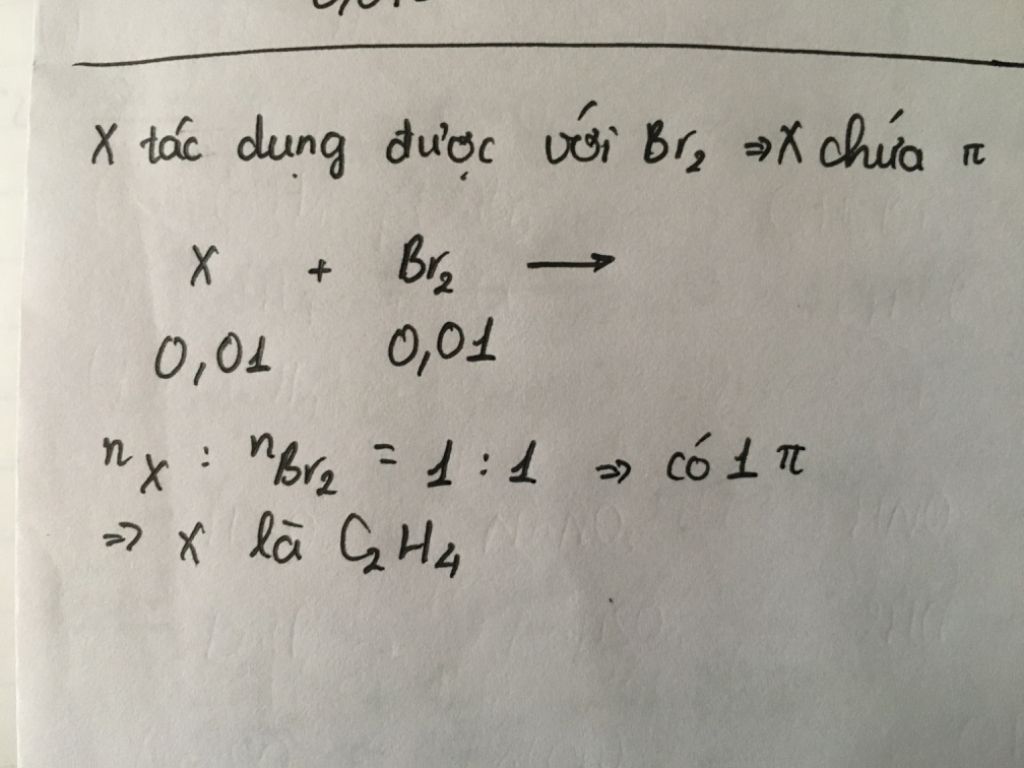 X tác dụng được với Br₂ ⇒ X chứa π
X + Br₂ ⟶
0,01 0,01
n_X : n_Br₂ = 1 : 1 ⇒ có 1 π
⇒ X là C₂H₄